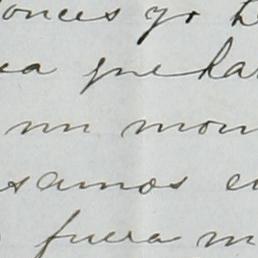 onces yo
ea que la
un mom
samos e
fuera m